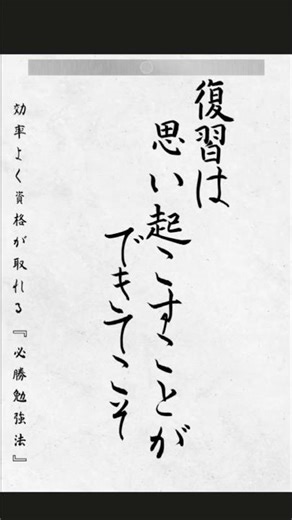 復習は
思い起こすことが
できてこそ
効率よく資格が取れる『必勝勉強法』